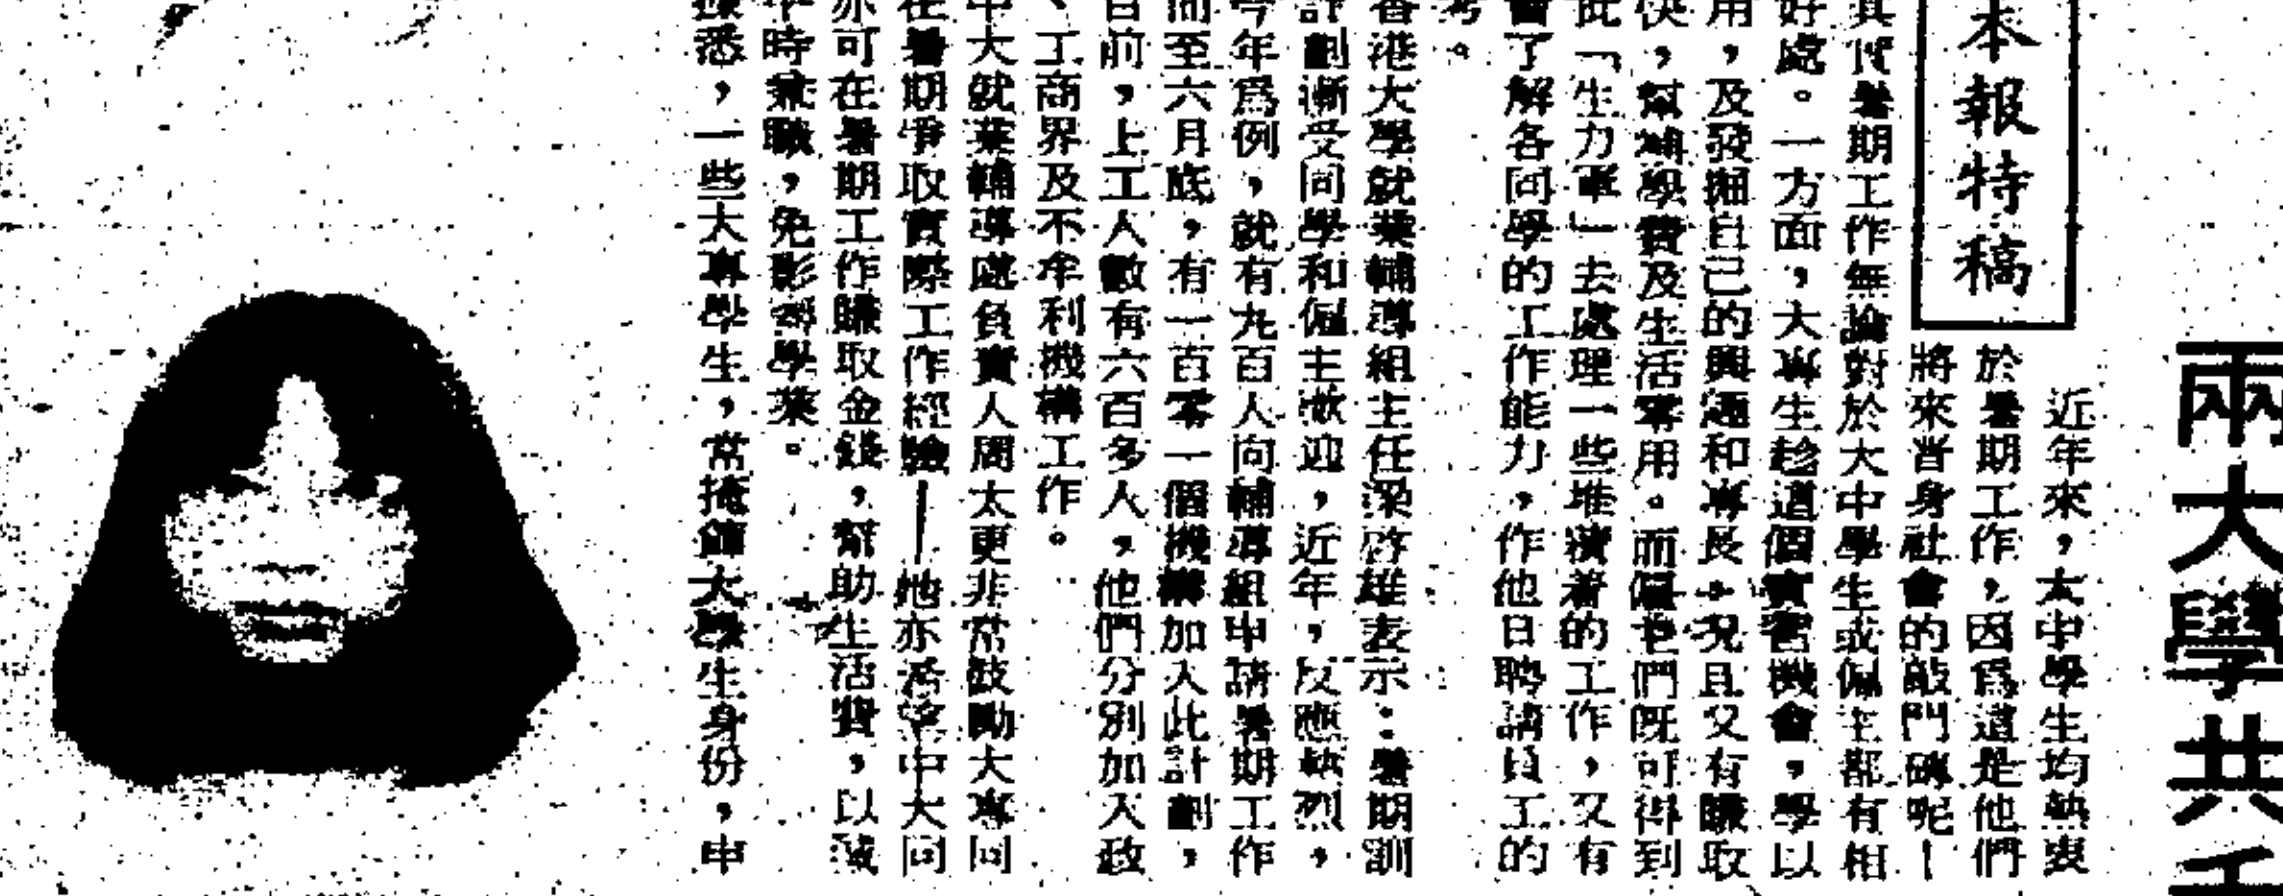 兩大學共
本報特稿
近年來，大中學生均熱衷
於暑期工作，因為這是他們
將來晋身社會的敲門磚呢！
其實暑期工作無論對於大中學生或僱主都有相
好處。一方面，大專生趁這個實習機會，學以
用，及發掘自己的興趣和專長，况且又有賺取
快，幫補學費及生活零用。而僱主們既可得到
此「生力軍」去處理一些堆積着的工作，又有
會了解各同學的工作能力，作他日聘請員工的
考。
香港大學就業輔導組主任梁啓雄表示：暑期訓
計劃漸受同學和僱主歡迎，近年，反應熱烈，
今年為例，就有九百人向輔導組申請暑期工作
間至六月底，有一百零一個機構加入此計劃，
目前，上工人數有六百多人，他們分別加入政
、工商界及不牟利機構工作。
中大就業輔導處負責人周太更非常鼓勵大專同
在暑期爭取實際工作經驗——她亦希望中大同
亦可在暑期工作賺取金錢，幫助生活費，以減
平時兼職，免影響學業。
據悉，一些大專學生，常掩飾大學生身份，申